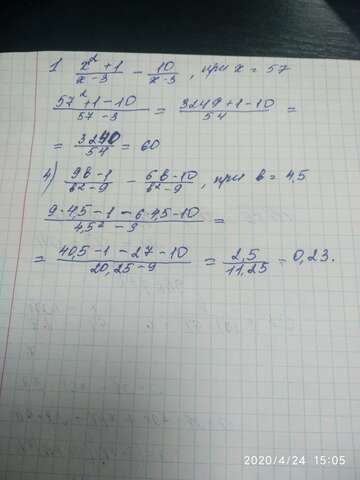 1 (x² + 1)/(x - 3) - 10/(x - 3), при x = 57
(57² + 1 - 10)/(57 - 3) = (3249 + 1 - 10)/54 =
= 3240/54 = 60
4) (9b - 1)/(b² - 9) - (6b - 10)/(b² - 9), при b = 4,5
(9·4,5 - 1 - 6·4,5 - 10)/(4,5² - 9) =
= (40,5 - 1 - 27 - 10)/(20,25 - 9) = 2,5/11,25 = 0,23.
2020/4/24 15:05